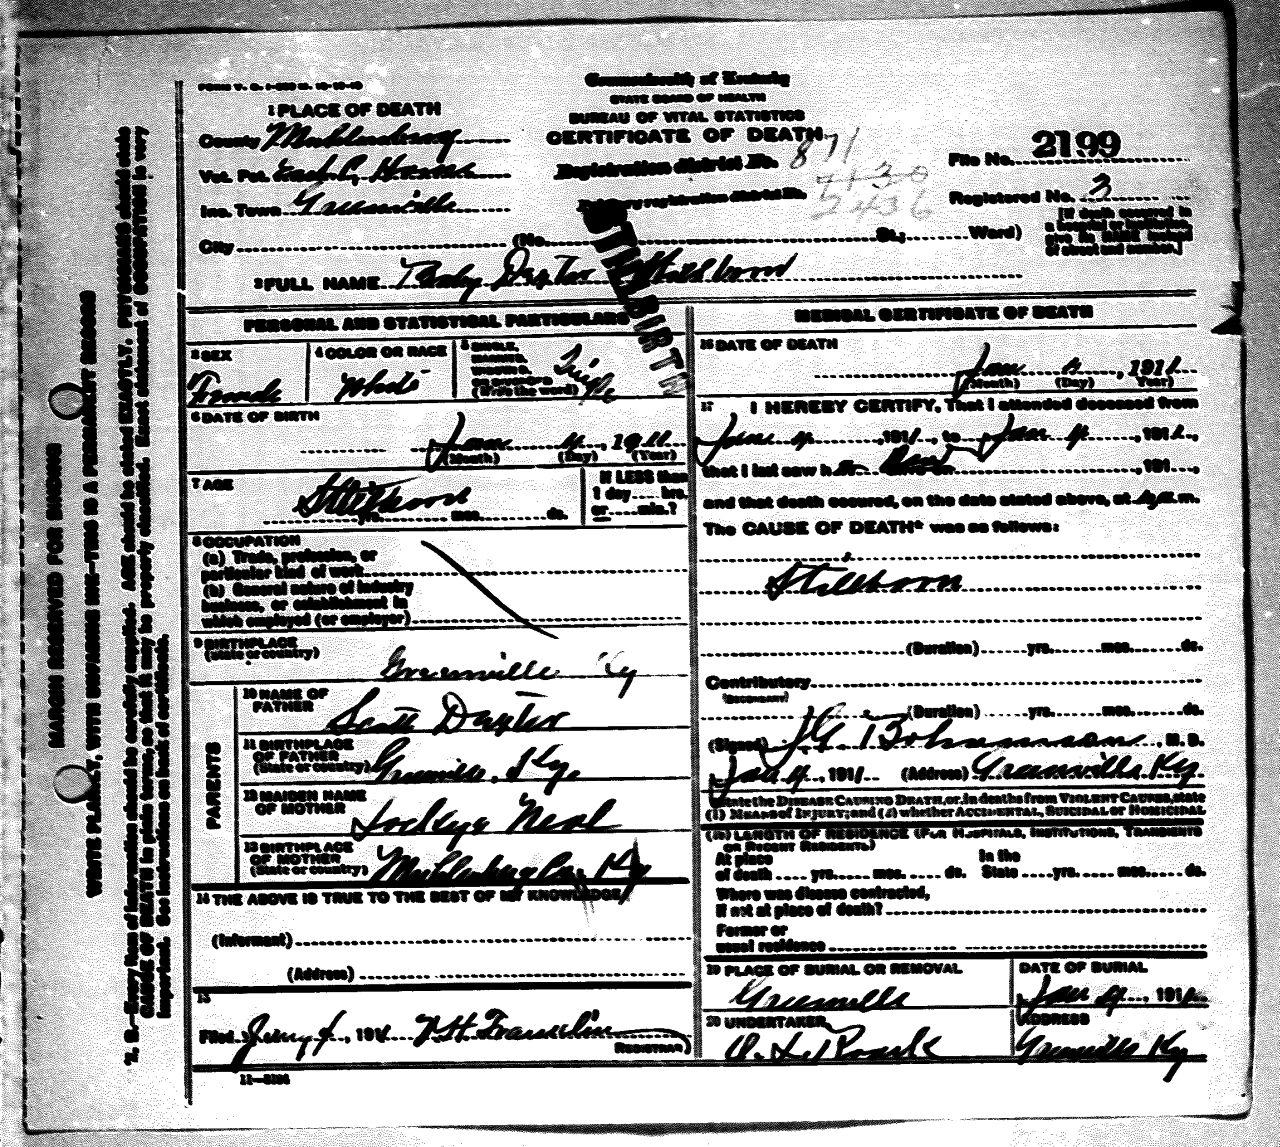 FORM V. S. 1-
Commonwealth of Kentucky
STATE BOARD OF HEALTH
BUREAU OF VITAL STATISTICS
CERTIFICATE OF DEATH
1 PLACE OF DEATH
County Muhlenberg
Vot. Pct. East
Inc. Town Greenville
City (No. St.; Ward)
Registration district No. 871
Primary registration district No. 7130
2436
File No. 2199
Registered No. 3
[If death occured in
a hospital or institution,
give its NAME instead
of street and number.]
2 FULL NAME Baby Dexter Stillborn
STILLBIRTH
PERSONAL AND STATISTICAL PARTICULARS
3 SEX
Female
4 COLOR OR RACE
White
5 SINGLE,
MARRIED,
WIDOWED,
OR DIVORCED
(Write the word)
Single
6 DATE OF BIRTH
Jan 4, 1911
(Month) (Day) (Year)
7 AGE
Stillborn
yrs. mos. ds.
If LESS than
1 day hrs.
or min.?
8 OCCUPATION
(a) Trade, profession, or
particular kind of work
(b) General nature of industry
business, or establishment in
which employed (or employer)
9 BIRTHPLACE
(State or country)
Greenville Ky
PARENTS
10 NAME OF
FATHER
Scott Dexter
11 BIRTHPLACE
OF FATHER
(State or country)
Greenville, Ky.
12 MAIDEN NAME
OF MOTHER
Neal
13 BIRTHPLACE
OF MOTHER
(State or country)
Muhlenberg Co. Ky
14 THE ABOVE IS TRUE TO THE BEST OF MY KNOWLEDGE
(Informant)
(Address)
15
Filed 191
REGISTRAR
11—
MEDICAL CERTIFICATE OF DEATH
16 DATE OF DEATH
Jan 4, 1911
(Month) (Day) (Year)
17 I HEREBY CERTIFY, That I attended deceased from
Jan 4, 1911, to Jan 4, 1911,
that I last saw h , 191 ,
and that death occured, on the date stated above, at m.
The CAUSE OF DEATH* was as follows:
Stillborn
(Duration) yrs. mos. ds.
Contributory
(SECONDARY)
(Duration) yrs. mos. ds.
(Signed) , M. D.
Jan 4, 1911 (Address) Greenville Ky
*State the DISEASE CAUSING DEATH, or, in deaths from VIOLENT CAUSES, state
(1) MEANS OF INJURY; and (2) whether ACCIDENTAL, SUICIDAL or HOMICIDAL
(18) LENGTH OF RESIDENCE (FOR HOSPITALS, INSTITUTIONS, TRANSIENTS
OR RECENT RESIDENTS.)
At place
of death yrs. mos. ds.
In the
State yrs. mos. ds.
Where was disease contracted,
if not at place of death?
Former or
usual residence
19 PLACE OF BURIAL OR REMOVAL
Greenville
DATE OF BURIAL
Jan 4, 1911
20 UNDERTAKER
Roark
ADDRESS
Greenville Ky
MARGIN RESERVED FOR BINDING
WRITE PLAINLY, WITH UNFADING INK—THIS IS A PERMANENT RECORD
N. B.—Every item of information should be carefully supplied. AGE should be stated EXACTLY. PHYSICIANS should state
CAUSE OF DEATH in plain terms, so that it may be properly classified. Exact statement of OCCUPATION is very
important. See instructions on back of certificate.